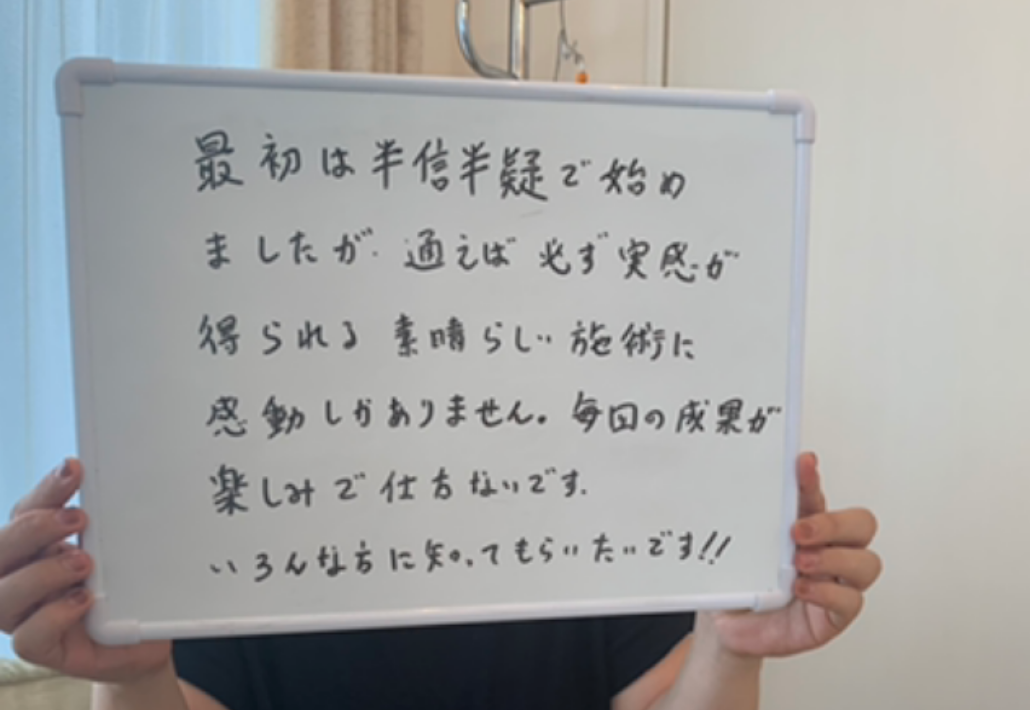 最初は半信半疑で始め
ましたが、通えば必ず実感が
得られる素晴らしい施術に
感動しかありません。毎回の成果が
楽しみで仕方ないです。
いろんな方に知ってもらいたいです!!